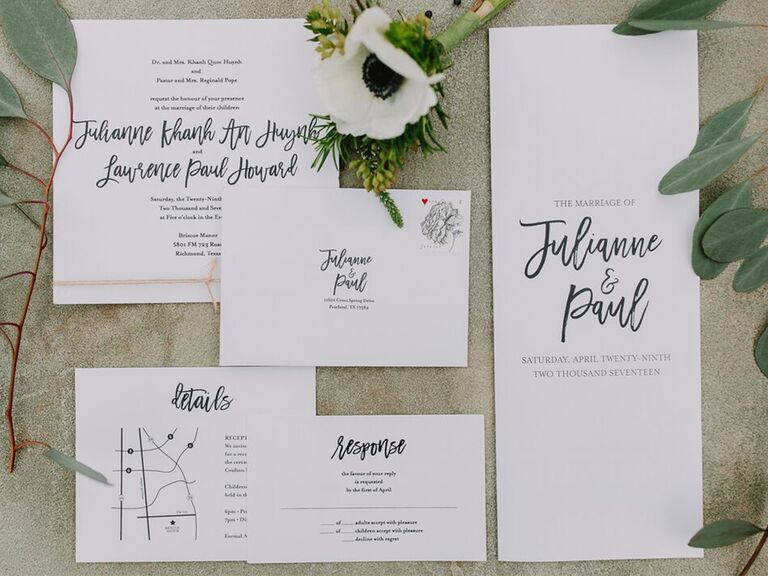 Dr. and Mrs. Khanh Quoc Huynh
and
Pastor and Mrs. Reginald Pope
request the honour of your presence
at the marriage of their children
Julianne Khanh An Huynh
and
Lawrence Paul Howard
Saturday, the Twenty-Ninth
Two Thousand and Seve
at Five o'clock in the Eve
Briscoe Manor
5801 FM 723 Road
Richmond, Texas
Julianne
&
Paul
Cross Spring Drive
Pearland, TX 77584
forever
THE MARRIAGE OF
Julianne
&
Paul
SATURDAY, APRIL TWENTY-NINTH
TWO THOUSAND SEVENTEEN
details
RECEP
We invite
for a rece
the cere
Children
held in th
6pm •
7pm • Di
Formal A
BRISCOE
MANOR
response
the favour of your reply
is requested
by the first of April
__ of __ adults accept with pleasure
__ of __ children accept with pleasure
__ decline with regret